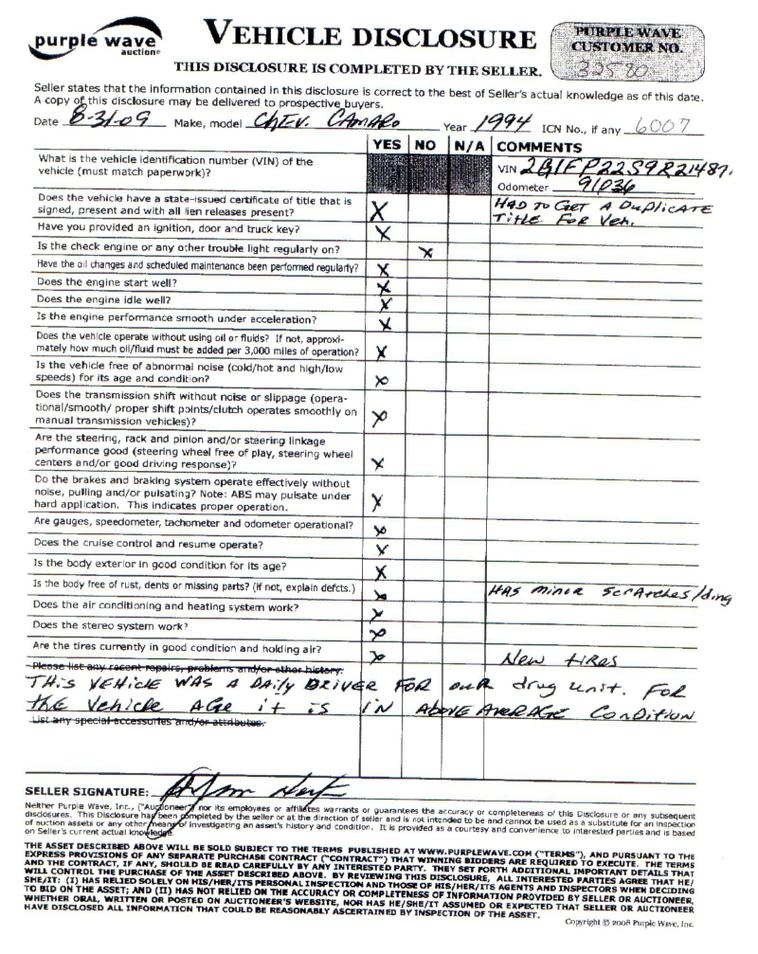 purple wave
auction®
VEHICLE DISCLOSURE
PURPLE WAVE
CUSTOMER NO.
32580
THIS DISCLOSURE IS COMPLETED BY THE SELLER.
Seller states that the information contained in this disclosure is correct to the best of Seller's actual knowledge as of this date.
A copy of this disclosure may be delivered to prospective buyers.
Date 8-31-09 Make, model CHEV. CAMARO Year 1994 ICN No., if any 6007
YES NO N/A COMMENTS
What is the vehicle identification number (VIN) of the
vehicle (must match paperwork)?
VIN 2G1FP22S9R21487
Odometer 91036
Does the vehicle have a state-issued certificate of title that is
signed, present and with all lien releases present? X
HAD TO GET A DUPLICATE
TITLE FOR Veh.
Have you provided an ignition, door and truck key? X
Is the check engine or any other trouble light regularly on? X
Have the oil changes and scheduled maintenance been performed regularly? X
Does the engine start well? X
Does the engine idle well? X
Is the engine performance smooth under acceleration? X
Does the vehicle operate without using oil or fluids? If not, approxi-
mately how much oil/fluid must be added per 3,000 miles of operation? X
Is the vehicle free of abnormal noise (cold/hot and high/low
speeds) for its age and condition? X
Does the transmission shift without noise or slippage (opera-
tional/smooth/ proper shift points/clutch operates smoothly on
manual transmission vehicles)? X
Are the steering, rack and pinion and/or steering linkage
performance good (steering wheel free of play, steering wheel
centers and/or good driving response)? X
Do the brakes and braking system operate effectively without
noise, pulling and/or pulsating? Note: ABS may pulsate under
hard application. This indicates proper operation. X
Are gauges, speedometer, tachometer and odometer operational? X
Does the cruise control and resume operate? X
Is the body exterior in good condition for its age? X
Is the body free of rust, dents or missing parts? (if not, explain defcts.) X HAS minor scratches/ding
Does the air conditioning and heating system work? X
Does the stereo system work? X
Are the tires currently in good condition and holding air? X New tires
Please list any recent repairs, problems and/or other history.
THIS VEHICLE WAS A DAILY DRIVER FOR our drug unit. FOR
the Vehicle AGE it is IN ABOVE AVERAGE CONDITION
List any special accessories and/or attributes.
SELLER SIGNATURE:
Neither Purple Wave, Inc., ("Auctioneer") nor its employees or affiliates warrants or guarantees the accuracy or completeness of this Disclosure or any subsequent
disclosures. This Disclosure has been completed by the seller or at the direction of seller and is not intended to be and cannot be used as a substitute for an inspection
of auction assets or any other means of investigating an asset's history and condition. It is provided as a courtesy and convenience to interested parties and is based
on Seller's current actual knowledge.
THE ASSET DESCRIBED ABOVE WILL BE SOLD SUBJECT TO THE TERMS PUBLISHED AT WWW.PURPLEWAVE.COM ("TERMS"), AND PURSUANT TO THE
EXPRESS PROVISIONS OF ANY SEPARATE PURCHASE CONTRACT ("CONTRACT") THAT WINNING BIDDERS ARE REQUIRED TO EXECUTE. THE TERMS
AND THE CONTRACT, IF ANY, SHOULD BE READ CAREFULLY BY ANY INTERESTED PARTY. THEY SET FORTH ADDITIONAL IMPORTANT DETAILS THAT
WILL CONTROL THE PURCHASE OF THE ASSET DESCRIBED ABOVE. BY REVIEWING THIS DISCLOSURE, ALL INTERESTED PARTIES AGREE THAT HE/
SHE/IT: (I) HAS RELIED SOLELY ON HIS/HER/ITS PERSONAL INSPECTION AND THOSE OF HIS/HER/ITS AGENTS AND INSPECTORS WHEN DECIDING
TO BID ON THE ASSET; AND (II) HAS NOT RELIED ON THE ACCURACY OR COMPLETENESS OF INFORMATION PROVIDED BY SELLER OR AUCTIONEER,
WHETHER ORAL, WRITTEN OR POSTED ON AUCTIONEER'S WEBSITE, NOR HAS HE/SHE/IT ASSUMED OR EXPECTED THAT SELLER OR AUCTIONEER
HAVE DISCLOSED ALL INFORMATION THAT COULD BE REASONABLY ASCERTAINED BY INSPECTION OF THE ASSET.
Copyright © 2008 Purple Wave, Inc.